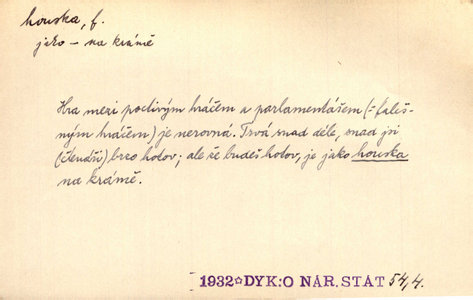 houska, f.
jako – na krámě
Hra mezi poctivým hráčem a parlamentášem (= faleš-
ným hráčem) je nerovná. Trvá snad déle, snad jsi
(čtenáři) brzo hotov; ale že budeš hotov, je jako houska
na krámě.
1932☆DYK: O NÁR. STÁT 54,4.